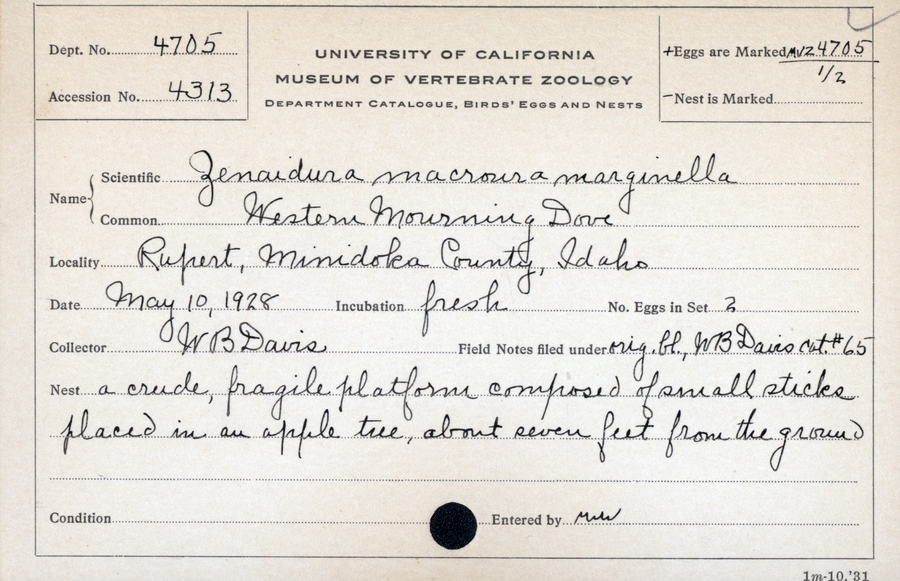 Dept. No. 4705
Accession No. 4313
UNIVERSITY OF CALIFORNIA
MUSEUM OF VERTEBRATE ZOOLOGY
DEPARTMENT CATALOGUE, BIRDS' EGGS AND NESTS
+Eggs are Marked MVZ 4705
1/2
-Nest is Marked
Name
Scientific Zenaidura macroura marginella
Common Western Mourning Dove
Locality Rupert, Minidoka County, Idaho
Date May 10, 1928 Incubation fresh No. Eggs in Set 2
Collector W B Davis Field Notes filed under orig. bl., W B Davis cat. #65
Nest a crude, fragile platform composed of small sticks
placed in an apple tree, about seven feet from the ground
Condition Entered by
1m-10.'31